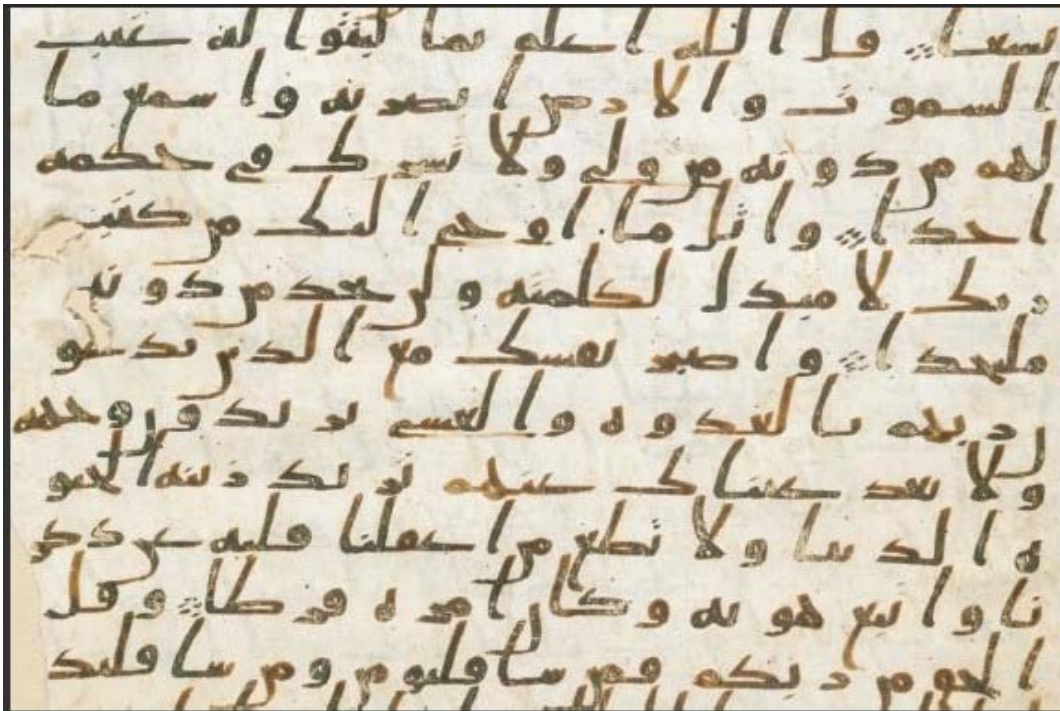 تسعا قل الله اعلم بما لبثوا له غيب
السموت والارض ابصر به واسمع ما
لهم من دونه من ولي ولا تشرك في حكمه
احدا واتل ما اوحي اليك من كتب
ربك لا مبدل لكلمته ولن تجد من دونه
ملتحدا واصبر نفسك مع الذين يدعو
ن ربهم بالغدوه والعشي يريدون وجهه
ولا تعد عيناك عنهم تريد زينه الحيو
ه الدنيا ولا تطع من اغفلنا قلبه عن ذكر
نا واتبع هويه وكان امره فرطا وقل
الحق من ربكم فمن شا فليومن ومن شا فليكفر